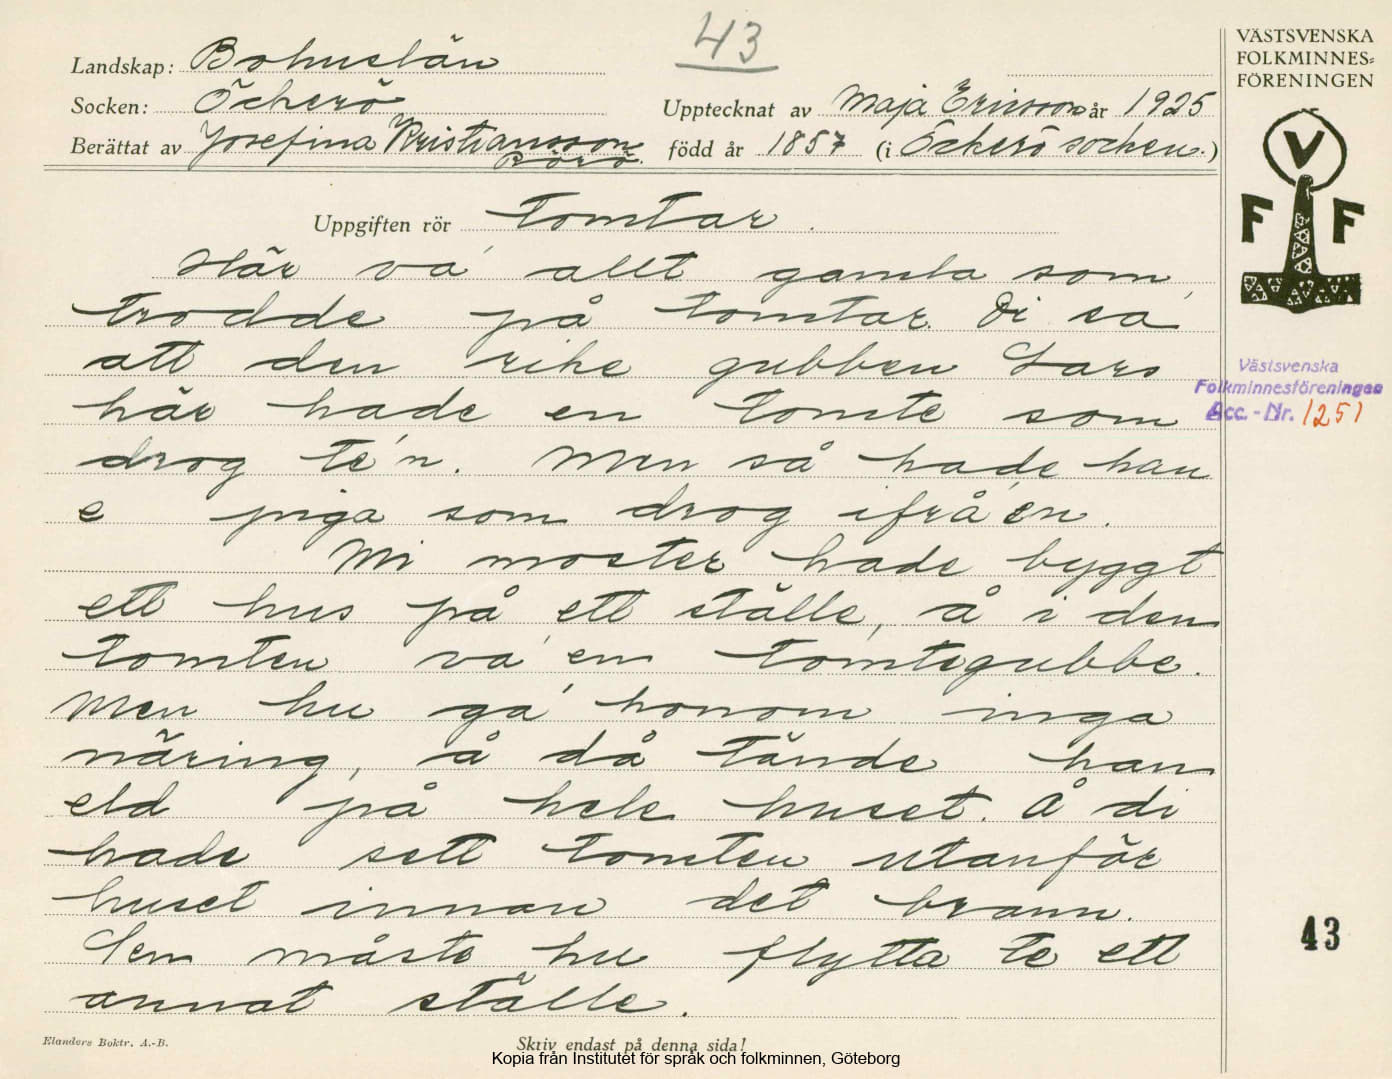 43
Landskap: Bohuslän
Socken: Öckerö
Upptecknat av Maja Ericson år 1925
Berättat av Josefina Kristiansson
Rörö.
född år 1857 (i Öckerö socken.)
Uppgiften rör Tomtar.
Här va' allt gamla som
trodde på tomtar. Di sa
att den rike gubben Lars
här hade en tomte som
drog te'n. Men så hade han
e piga som drog ifrå'en.
Mi moster hade byggt
ett hus på ett ställe, å i den
tomten va' en tomtegubbe.
Men hu ga' honom inga
näring, å då tände han
eld på hele huset. Å di
hade sett tomten utanför
huset innan det brann.
Sen måste hu flytta te ett
annat ställe.
Elanders Boktr. A.-B.
Skriv endast på denna sida!
Kopia från Institutet för språk och folkminnen, Göteborg
VÄSTSVENSKA
FOLKMINNES=
FÖRENINGEN
V
F F
Västsvenska
Folkminnesföreningen
Acc. - Nr. 1251
43